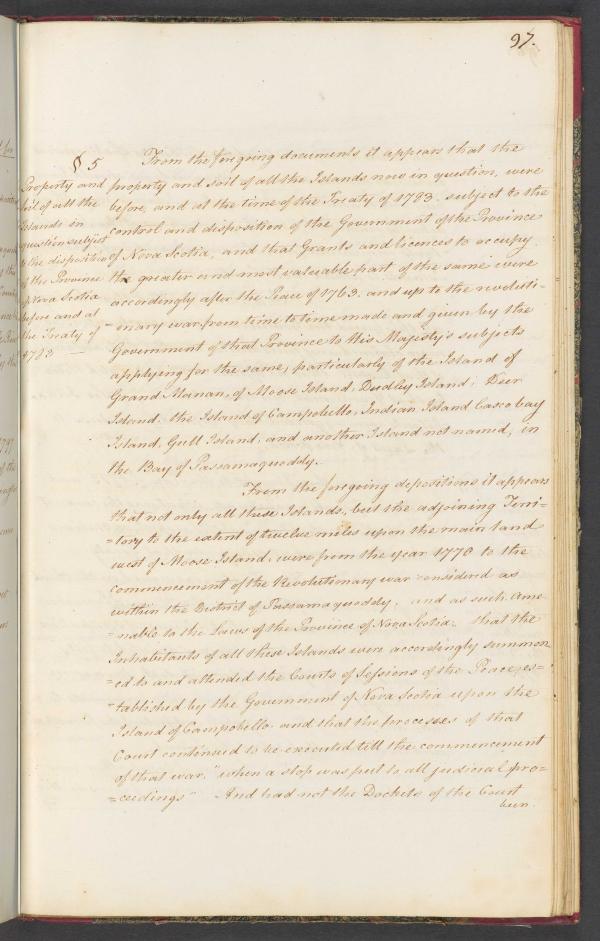 97.
§ 5
Property and
Soil of all the
Islands in
question subject
to the disposition
of the Province
of Nova Scotia
before and at
the Treaty of
1783 —
From the foregoing documents it appears that the
property and soil of all the Islands now in question, were
before, and at the time of the Treaty of 1783, subject to the
control and disposition of the Government of the Province
of Nova Scotia, and that Grants and licences to occupy,
the greater and most valuable part of the same were
accordingly after the Peace of 1763. and up to the revoluti-
-onary war from time to time made and given by the
Government of that Province to His Majesty's subjects
applying for the same, particularly of the Island of
Grand Manan, of Moose Island, Dudley Island, Deer
Island, the Island of Campobello, Indian Island Casco bay
Island, Gull Island, and another Island not named, in
the Bay of Passamaquoddy.
From the foregoing depositions it appears
that not only all these Islands, but the adjoining Terri=
=tory to the extent of twelve miles upon the main land
west of Moose Island, were from the year 1770 to the
commencement of the Revolutionary war considered as
within the District of Passamaquoddy, and as such ame-
-nable to the Laws of the Province of Nova Scotia. that the
Inhabitants of all these Islands were accordingly summon
=ed to and attended the Courts of Sessions of the Peace, es=
=tablished by the Government of Nova Scotia upon the
Island of Campobello. and that the processes of that
Court continued to be executed till the commencement
of that war, "when a stop was put to all judicial pro=
=ceedings" And had not the Dockets of the Court
been